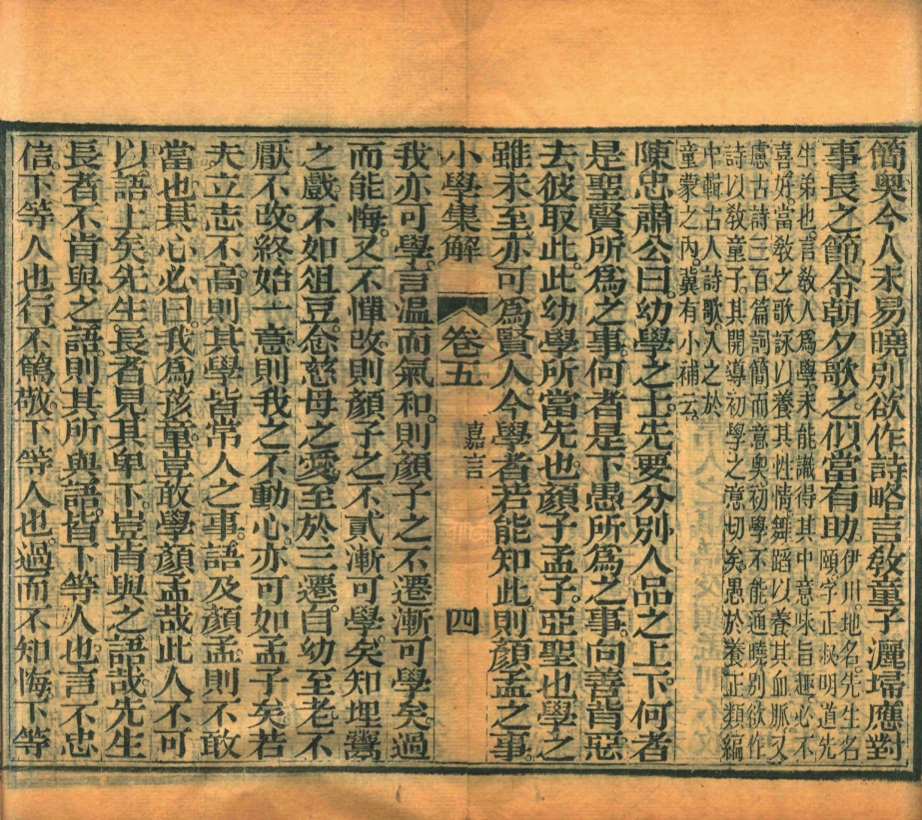 簡奧今人未易曉別欲作詩略言敎童子灑埽應對
事長之節令朝夕歌之似當有助伊川地名先生名
頤字正叔明道先
生弟也言敎人爲學未能識得其中意味旨趣必不
喜好當敎之歌詠以養其性情舞蹈以養其血脈又
慮古詩三百篇詞簡而意奧初學不能通曉別欲作
詩以敎童子其開導初學之意切矣愚於養正類編
中輯古人詩歌入之於
童蒙之內冀有小補云
陳忠肅公曰幼學之士先要分別人品之上下何者
是聖賢所爲之事何者是下愚所爲之事向善背惡
去彼取此此幼學所當先也顏子孟子亞聖也學之
雖未至亦可爲賢人今學者若能知此則顏孟之事
小學集解 卷五 嘉言 四
我亦可學言溫而氣和則顏子之不遷漸可學矣過
而能悔又不憚改則顏子之不貳漸可學矣知埋鬻
之戲不如俎豆念慈母之愛至於三遷自幼至老不
厭不改終始一意則我之不動心亦可如孟子矣若
夫立志不高則其學皆常人之事語及顏孟則不敢
當也其心必曰我爲孩童豈敢學顏孟哉此人不可
以語上矣先生長者見其卑下豈肯與之語哉先生
長者不肯與之語則其所與語皆下等人也言不忠
信下等人也行不篤敬下等人也過而不知悔下等